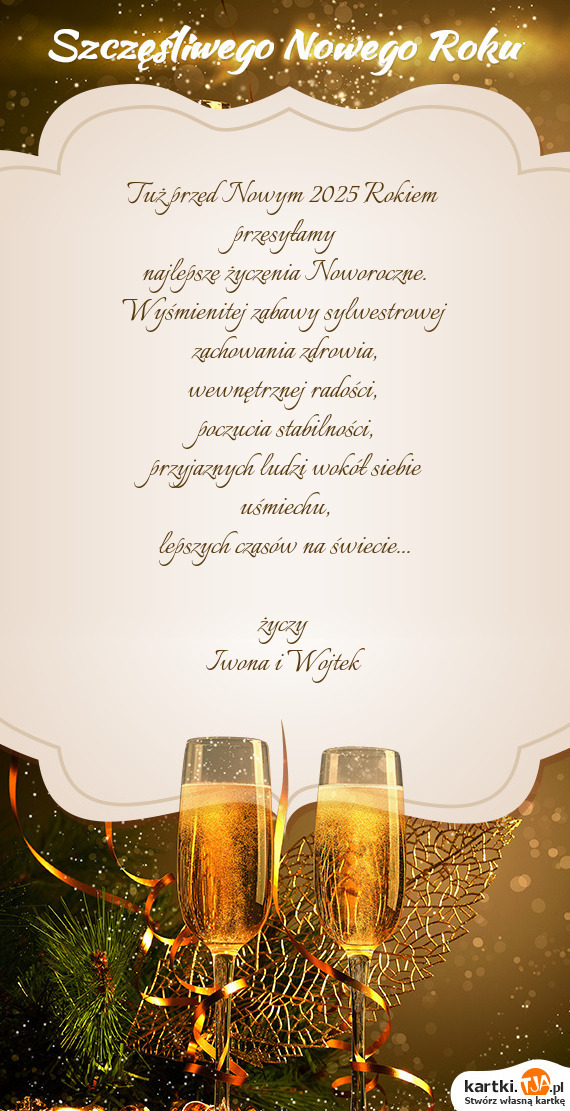 Szczęśliwego Nowego Roku
Tuż przed Nowym 2025 Rokiem
przesyłamy
najlepsze życzenia Noworoczne.
Wyśmienitej zabawy sylwestrowej
zachowania zdrowia,
wewnętrznej radości,
poczucia stabilności,
przyjaznych ludzi wokół siebie
uśmiechu,
lepszych czasów na świecie...
życzy
Iwona i Wojtek
kartki.TJA.pl
Stwórz własną kartkę